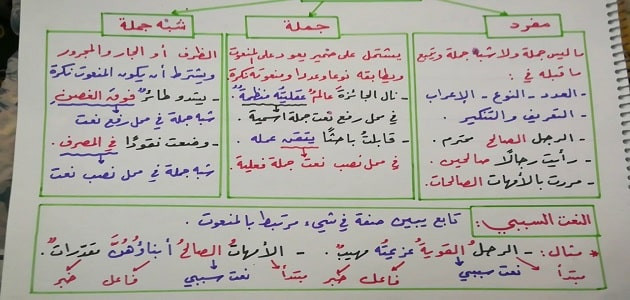 مفرد
ما ليس جملة ولا شبه جملة ويتبع
ما قبله في :
- العدد - النوع - الإعراب
- التعريف والتنكير .
- الرجل الصالح محترم .
- رأيت رجالًا صالحين .
- مررت بالأمهات الصالحات .
جملة
يشتمل على ضمير يعود على المنعوت
ويطابقه نوعا وعددا ومنعوته نكرة
- نال الجائزة عالمٌ عقليتُه منظمةٌ .
في محل رفع نعت جملة اسمية .
- قابلتُ باحثًا يتقن عمله .
في محل نصب نعت جملة فعلية .
شبه جملة
الظرف أو الجار والمجرور
ويشترط أن يكون المنعوت نكرة
- يشدو طائرٌ فوقَ الغصنِ .
شبه جملة في محل رفع نعت
- وضعت نقودًا في المصرف .
شبه جملة في محل نصب نعت
النعت السببي : تابع يبين صفة في شيء مرتبط بالمنعوت .
* مثال : - الرجلُ القويةُ عزيمتُه مهيبٌ . - الأمهاتُ الصالحُ أبناؤهُنَّ مقدَّراتٌ .
مبتدأ نعت سببي فاعل خبر مبتدأ نعت سببي فاعل خبر